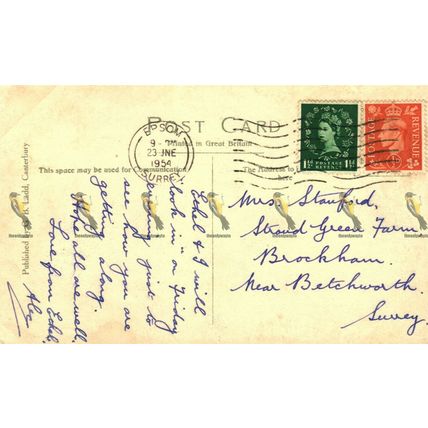 POST CARD
Printed in Great Britain
This space may be used for Communication
The Address to
here
EPSOM
23 JNE
1954
SURREY
1½D POSTAGE REVENUE 1½D
REVENUE
Ethel & I will
look in on Friday
evening just to
see how you are
getting along.
Hope all are well.
Love from Ethel
Alec
Mrs Stanford,
Strood Green Farm,
Brockham.
Near Betchworth.
Surrey.
Ladd, Canterbury
Published by